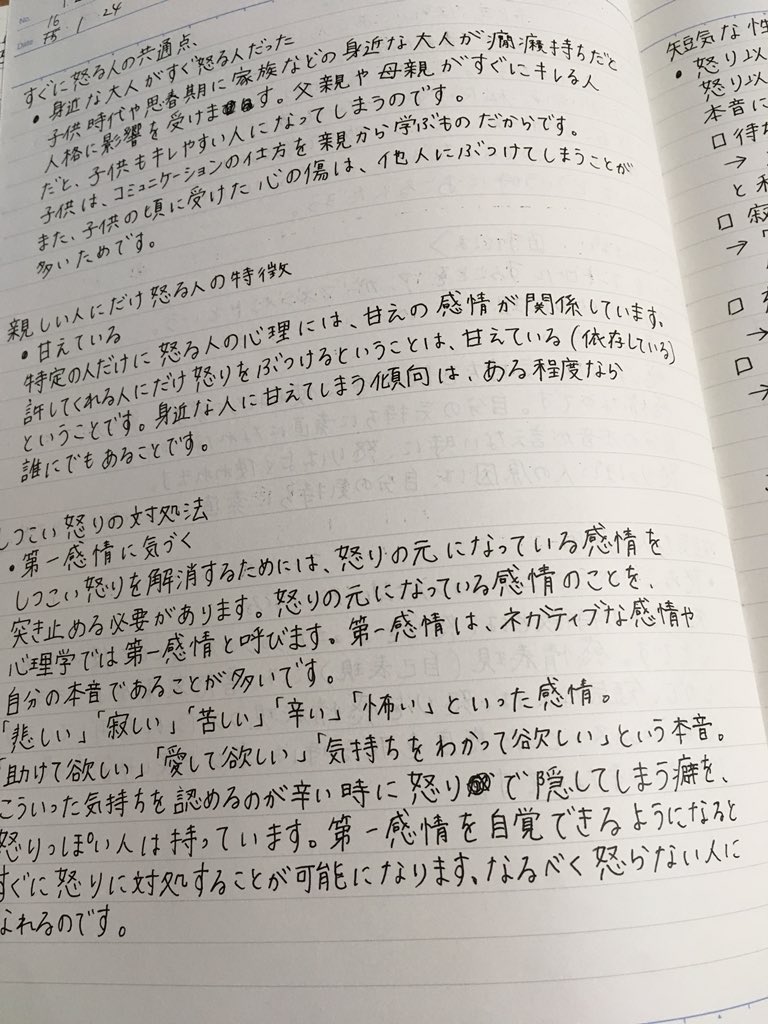 No.
16 1 2
Date 75 1 24
すぐに怒る人の共通点、
• 身近な大人がすぐ怒る人だった
子供時代や思春期に家族などの身近な大人が癇癪持ちだと
人格に影響を受けます。父親や母親がすぐにキレる人
だと、子供もキレやすい人になってしまうのです。
子供は、コミュニケーションの仕方を親から学ぶものだからです。
また、子供の頃に受けた心の傷は、他人にぶつけてしまうことが
多いためです。
親しい人にだけ怒る人の特徴
• 甘えている
特定の人だけに怒る人の心理には、甘えの感情が関係しています。
許してくれる人にだけ怒りをぶつけるということは、甘えている(依存している)
ということです。身近な人に甘えてしまう傾向は、ある程度なら
誰にでもあることです。
しつこい怒りの対処法
• 第一感情に気づく
しつこい怒りを解消するためには、怒りの元になっている感情を
突き止める必要があります。怒りの元になっている感情のことを、
心理学では第一感情と呼びます。第一感情は、ネガティブな感情や
自分の本音であることが多いです。
「悲しい」「寂しい」「苦しい」「辛い」「怖い」といった感情。
「助けて欲しい」「愛して欲しい」「気持ちをわかって欲しい」という本音。
こういった気持ちを認めるのが辛い時に怒りで隠してしまう癖を、
怒りっぽい人は持っています。第一感情を自覚できるようになると
すぐに怒りに対処することが可能になります、なるべく怒らない人に
なれるのです。
短気な性
• 怒り以
怒り以
本音に
□ 待
→
と
□ 寂
→
□
□
→